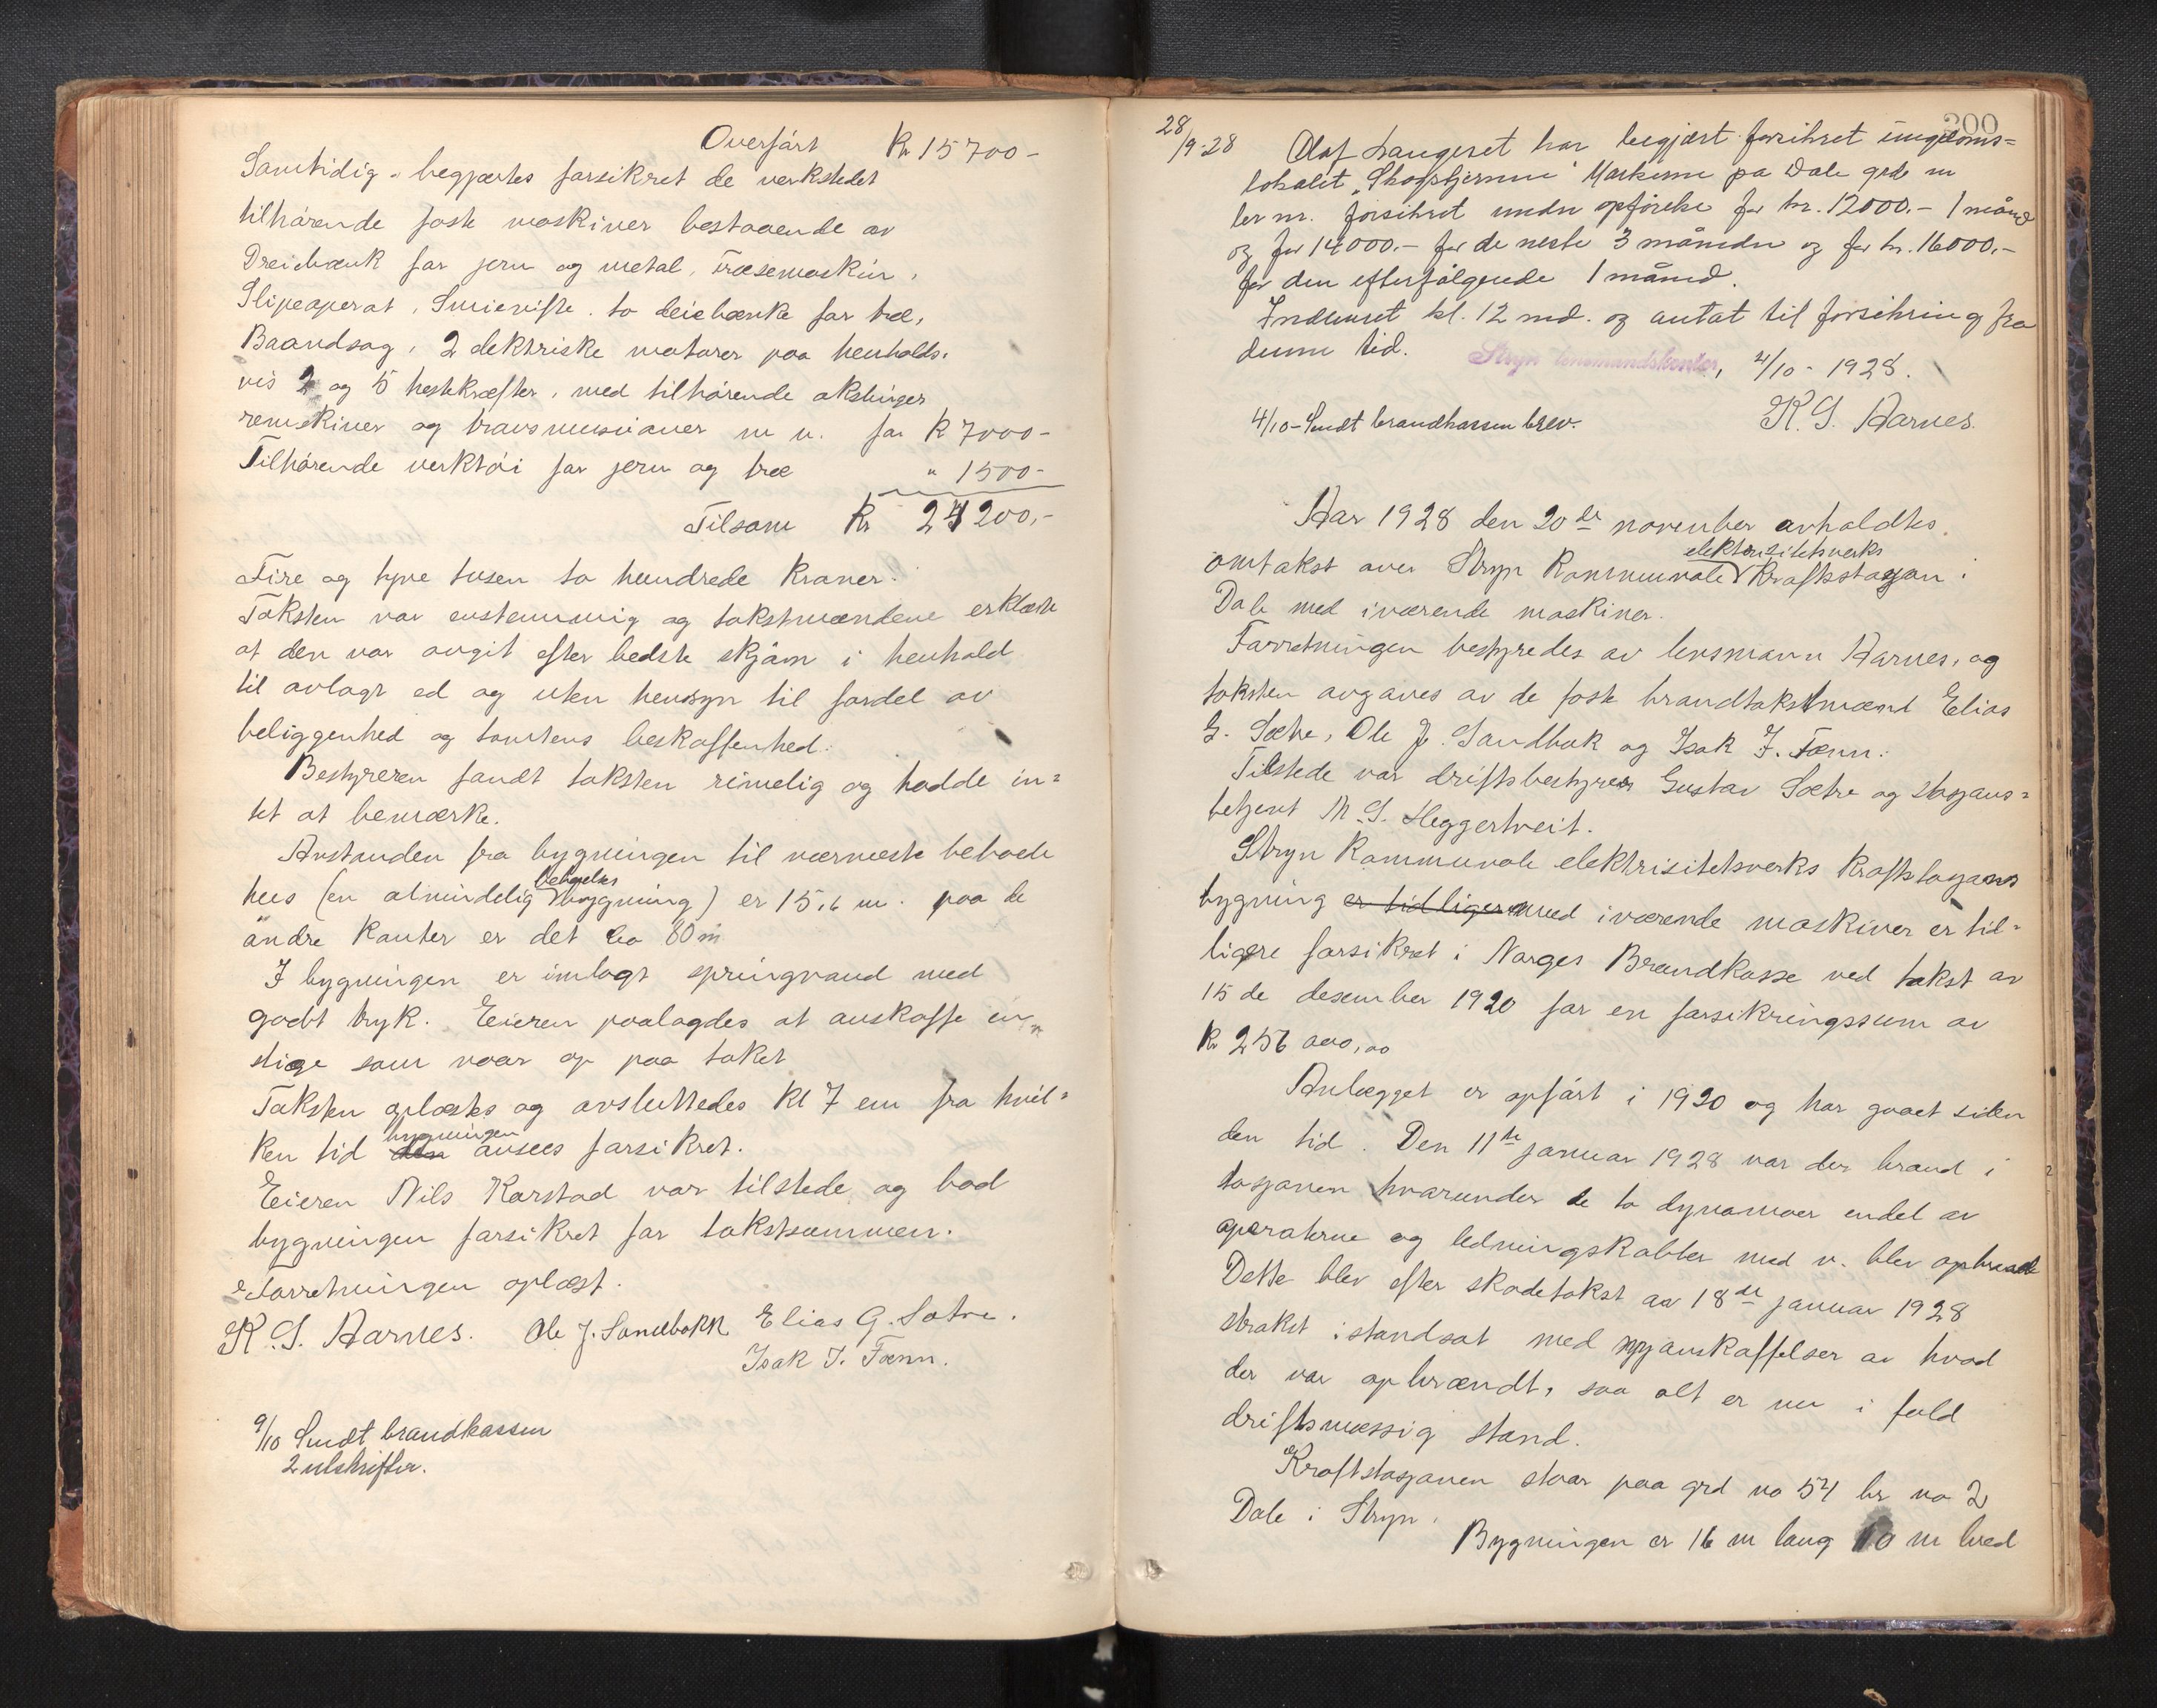 Overført Kr 15700-
Samtidig begjærtes forsikret de verkstedet
tilhørende faste maskiner bestaaende av
Dreiebænk for jern og metal, Fræsemaskin,
Slipeaperat, Smievifte. to deiebænke for træ,
Baandsag, 2 elektriske motorer paa henholds-
vis 2 og 5 hestekræfter, med tilhørende akslinger
remskiver og transmissioner m v. for K 7000-
Tilhørende verktøi for jern og træ " 1500-
Tilsam Kr 24200,-
Fire og tyve tusen to hundrede kroner.
Taksten var enstemmig og takstmændene erklærte
at den var avgit efter bedste skjøn i henhold
til avlagt ed og uten hensyn til fordel av
beliggenhed og tomtens beskaffenhed.
Bestyreren fandt taksten rimelig og hadde in=
tet at bemærke.
Avstanden fra bygningen til nærmeste beboede
hus (en almindelig bebyelses bygning) er 15,6 m. paa de
andre kanter er det ca 80 m
I bygningen er innlagt springvand med
godt tryk. Eieren paalagdes at anskaffe en
stige som naar op paa taket
Taksten oplæstes og avsluttedes kl 7 em fra hvil=
ken tid den bygningen ansees forsikret.
Eieren Nils Karstad var tilstede og bad
bygningen forsikret for takstsummen.
Forretningen oplæst.
K. S. Aarnes. Ole J. Sandbakk Elias G. Sætre.
Isak J. Fænn.
9/10 Sendt brandkassen
2 utskrifter.
300
28/9-28 Olaf Langeset har begjært forsikret ungdoms=
lokalet "Skogstjernne" Markene på Dale grd nr
br nr. forsikret under opførelse for kr. 12000.- 1 måned
og for 14000.- for de neste 3 måneder og for kr. 16000.-
for den efterfølgende 1 måned.
Indkomet kl. 12 md. og antat til forsikring fra
denne tid. Stryn lensmandskontor, 4/10 - 1928.
4/10 - Sendt brandkassen brev. K. S. Aarnes.
Aar 1928 den 20de november avholdtes
omtakst over Stryn Kommunale elektrisitetsverks Kraftstasjon i
Dale med iværende maskiner.
Forretningen bestyredes av lensmann Aarnes, og
taksten avgaves av de faste brandtakstmænd Elias
G. Sætre, Ole J. Sandbak og Isak J. Fænn.
Tilstede var driftsbestyrer Gustav Sætre og stasjons=
betjent M. S. Heggertveit.
Stryn Kommunale elektrisitetsverks kraftstasjons
bygning er tidligere med iværende maskiner er tid=
ligere forsikret i Norges Brandkasse ved takst av
15 de desember 1920 for en forsikringssum av
Kr 256 000,00
Anlægget er opført i 1920 og har gaaet siden
den tid. Den 11te januar 1928 var der brand i
stasjonen hvorunder de to dynamoer endel av
aperaterne og ledningskabler med v. blev opbrændt
Dette blev efter skadetakst av 18de januar 1928
strakst istandsat med nyanskaffelser av hvad
der var opbrændt, saa alt er nu i fuld
driftsmæssig stand.
Kraftstasjonen staar paa grd no 54 br no 2
Dale i Stryn.
Bygningen er 16 m lang 10 m bred